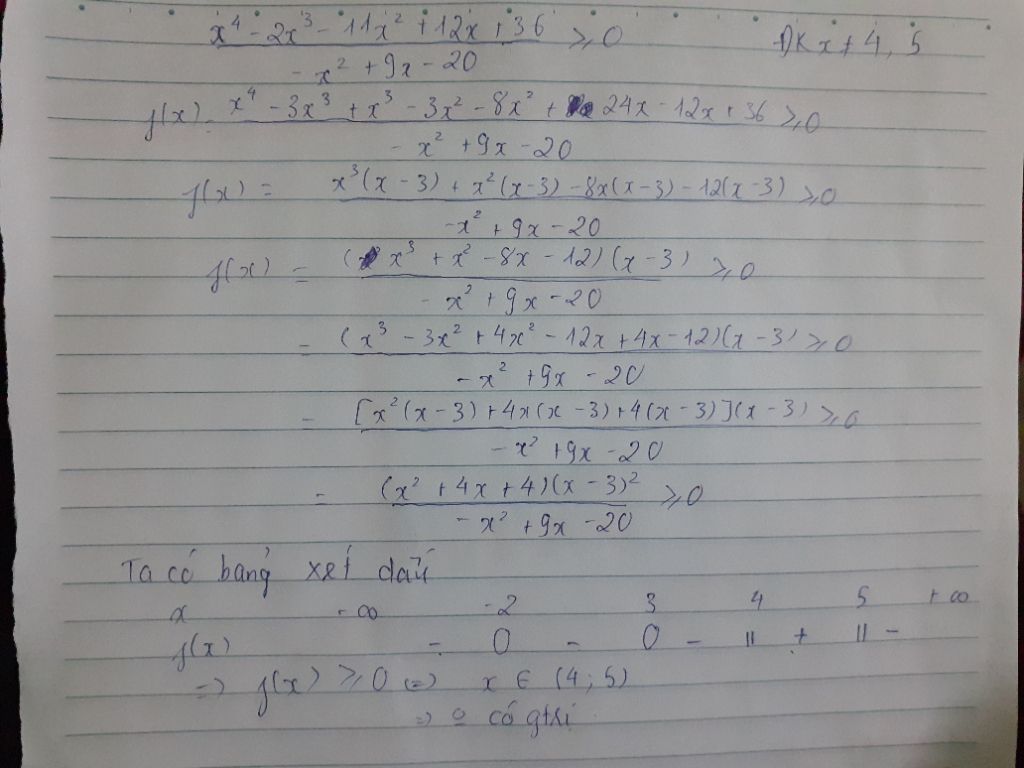 x⁴ - 2x³ - 11x² + 12x + 36 / -x² + 9x - 20 ≥ 0 ĐK x ≠ 4, 5
f(x) = x⁴ - 3x³ + x³ - 3x² - 8x² + 24x - 12x + 36 / -x² + 9x - 20 ≥ 0
f(x) = x³(x - 3) + x²(x - 3) - 8x(x - 3) - 12(x - 3) / -x² + 9x - 20 ≥ 0
f(x) = (x³ + x² - 8x - 12)(x - 3) / -x² + 9x - 20 ≥ 0
= (x³ - 3x² + 4x² - 12x + 4x - 12)(x - 3) / -x² + 9x - 20 ≥ 0
= [x²(x - 3) + 4x(x - 3) + 4(x - 3)](x - 3) / -x² + 9x - 20 ≥ 0
= (x² + 4x + 4)(x - 3)² / -x² + 9x - 20 ≥ 0
Ta có bảng xét dấu
x -∞ -2 3 4 5 +∞
f(x) - 0 - 0 - || + || -
=> f(x) ≥ 0 <=> x ∈ (4; 5)
=> có gtri